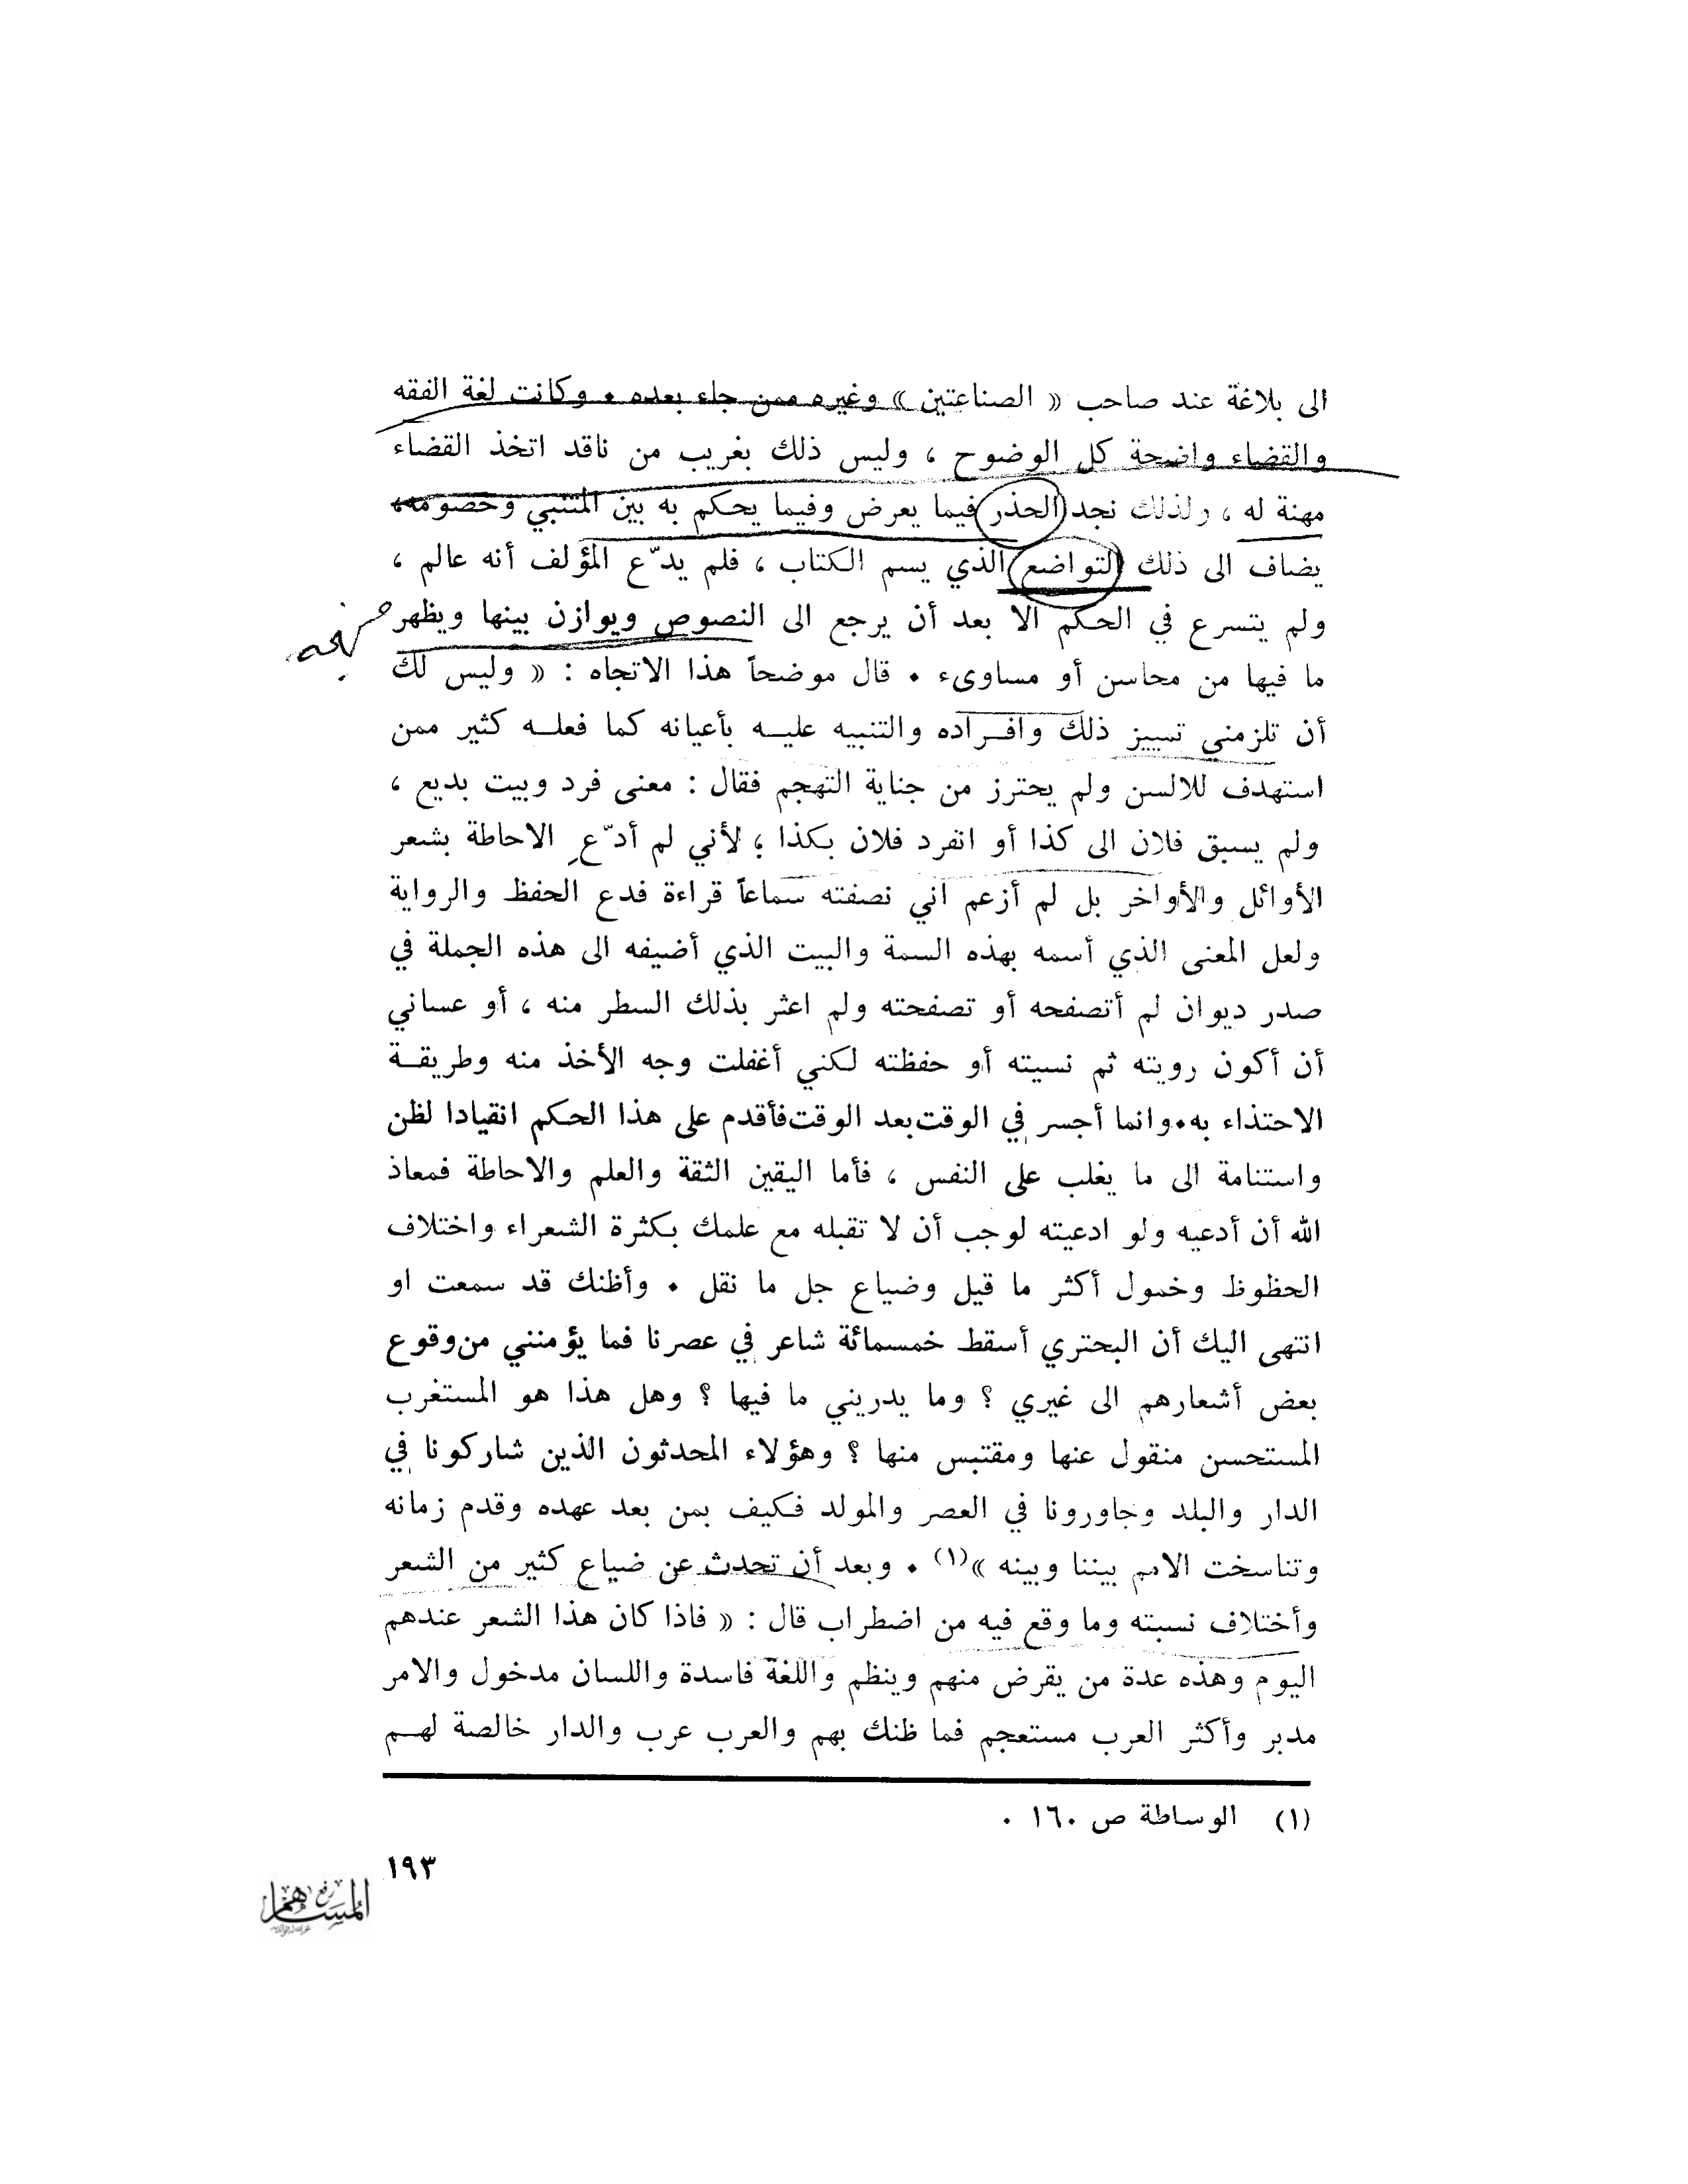 الى بلاغة عند صاحب « الصناعتين » وغيره ممن جاء بعده . وكانت لغة الفقه
والقضاء واضحة كل الوضوح ، وليس ذلك بغريب من ناقد اتخذ القضاء
مهنة له ، ولذلك نجد الحذر فيما يعرض وفيما يحكم به بين المتنبي وخصومه،
يضاف الى ذلك التواضع الذي يسم الكتاب ، فلم يدّع المؤلف أنه عالم ،
ولم يتسرع في الحكم الا بعد أن يرجع الى النصوص ويوازن بينها ويظهر
ما فيها من محاسن أو مساوىء . قال موضحاً هذا الاتجاه : « وليس لك
أن تلزمني تمييز ذلك وافـراده والتنبيه عليـه بأعيانه كما فعلـه كثير ممن
استهدف للالسن ولم يحترز من جناية التهجم فقال : معنى فرد وبيت بديع ،
ولم يسبق فلان الى كذا أو انفرد فلان بكذا ؛ لأني لم أدّعِ الاحاطة بشعر
الأوائل والأواخر بل لم أزعم اني نصفته سماعاً قراءة فدع الحفظ والرواية
ولعل المعنى الذي أسمه بهذه السمة والبيت الذي أضيفه الى هذه الجملة في
صدر ديوان لم أتصفحه أو تصفحته ولم اعثر بذلك السطر منه ، أو عساني
أن أكون رويته ثم نسيته أو حفظته لكني أغفلت وجه الأخذ منه وطريقـة
الاحتذاء به.وانما أجسر في الوقت بعد الوقت فأقدم على هذا الحكم انقيادا لظن
واستنامة الى ما يغلب على النفس ، فأما اليقين الثقة والعلم والاحاطة فمعاذ
الله أن أدعيه ولو ادعيته لوجب أن لا تقبله مع علمك بكثرة الشعراء واختلاف
الحظوظ وخمول أكثر ما قيل وضياع جل ما نقل . وأظنك قد سمعت او
انتهى اليك أن البحتري أسقط خمسمائة شاعر في عصرنا فما يؤمنني من وقوع
بعض أشعارهم الى غيري ؟ وما يدريني ما فيها ؟ وهل هذا هو المستغرب
المستحسن منقول عنها ومقتبس منها ؟ وهؤلاء المحدثون الذين شاركونا في
الدار والبلد وجاورونا في العصر والمولد فكيف بمن بعد عهده وقدم زمانه
وتناسخت الامم بيننا وبينه »(١) . وبعد أن تحدث عن ضياع كثير من الشعر
وأختلاف نسبته وما وقع فيه من اضطراب قال : « فاذا كان هذا الشعر عندهم
اليوم وهذه عدة من يقرض منهم وينظم واللغة فاسدة واللسان مدخول والامر
مدبر وأكثر العرب مستعجم فما ظنك بهم والعرب عرب والدار خالصة لهـم
(١) الوساطة ص ١٦٠ .
١٩٣